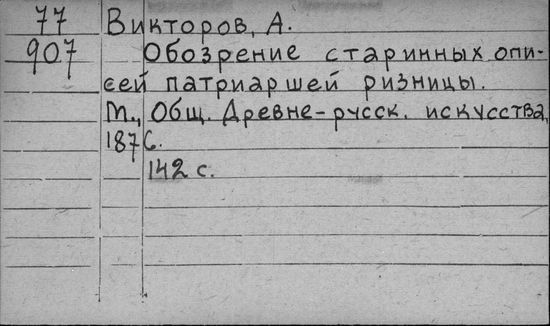 77 Викторов, А.
907 Обозрение старинных опи-
сей патриаршей ризницы.
М., Общ. Древне-русск. искусства,
1876.
142 с.